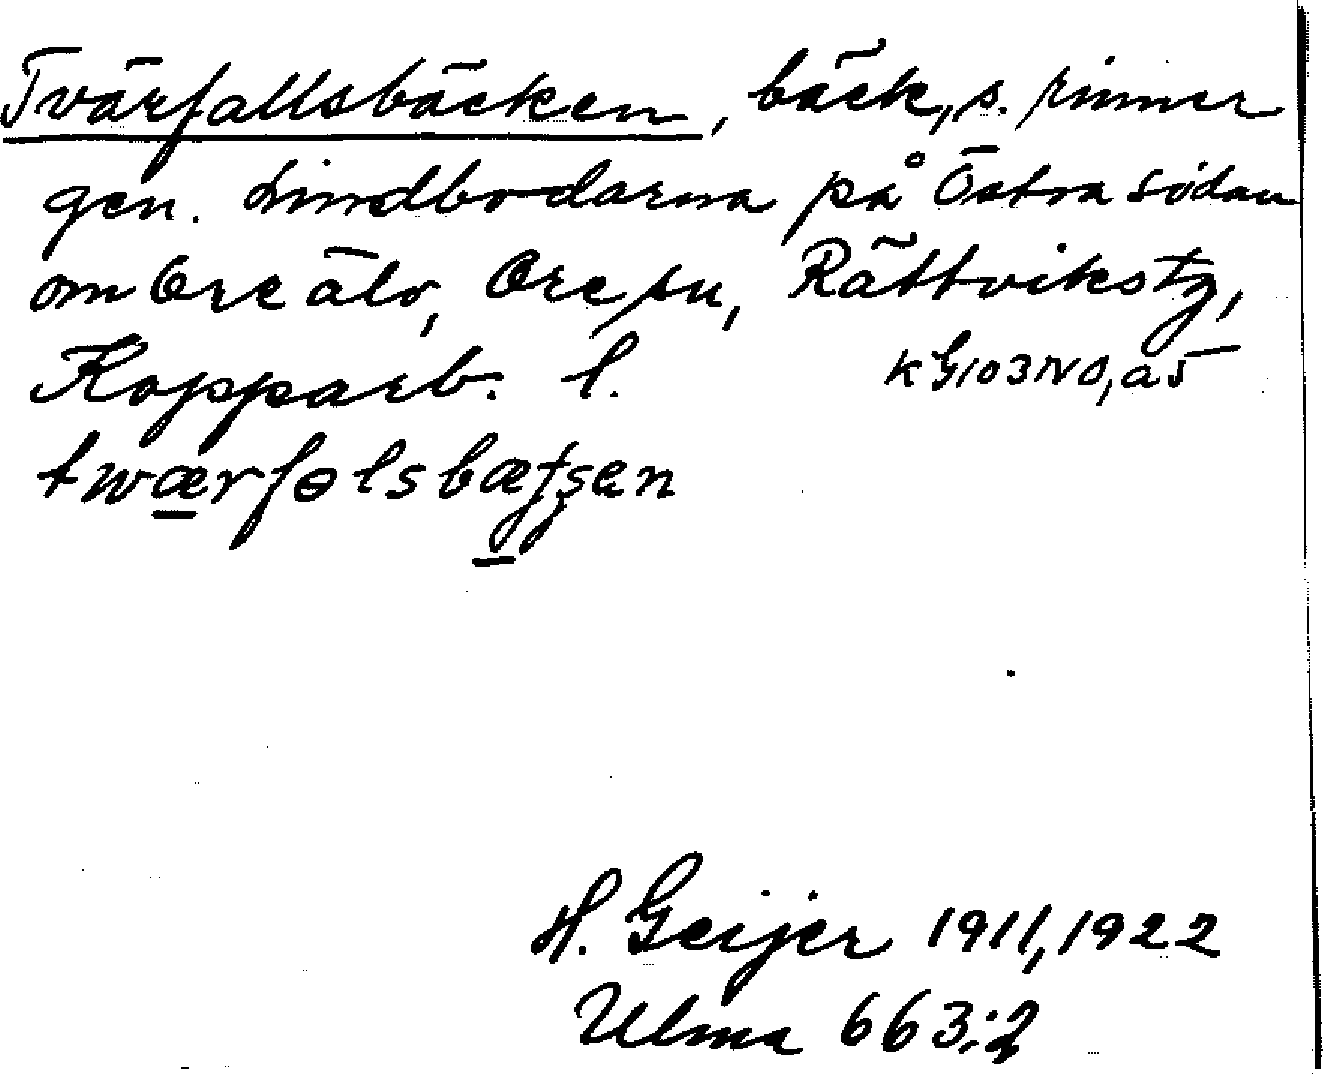 Tvärfallsbäcken, bäck, s. rinner
gen. Lindbodarna på Östra sidan
om Ore älv, Ore sn, Rättvikstg,
Kopparb. l.
K G103NO, a5
twærfɵlsbæ
H. Geijer 1911, 1922
Ulma 663:2